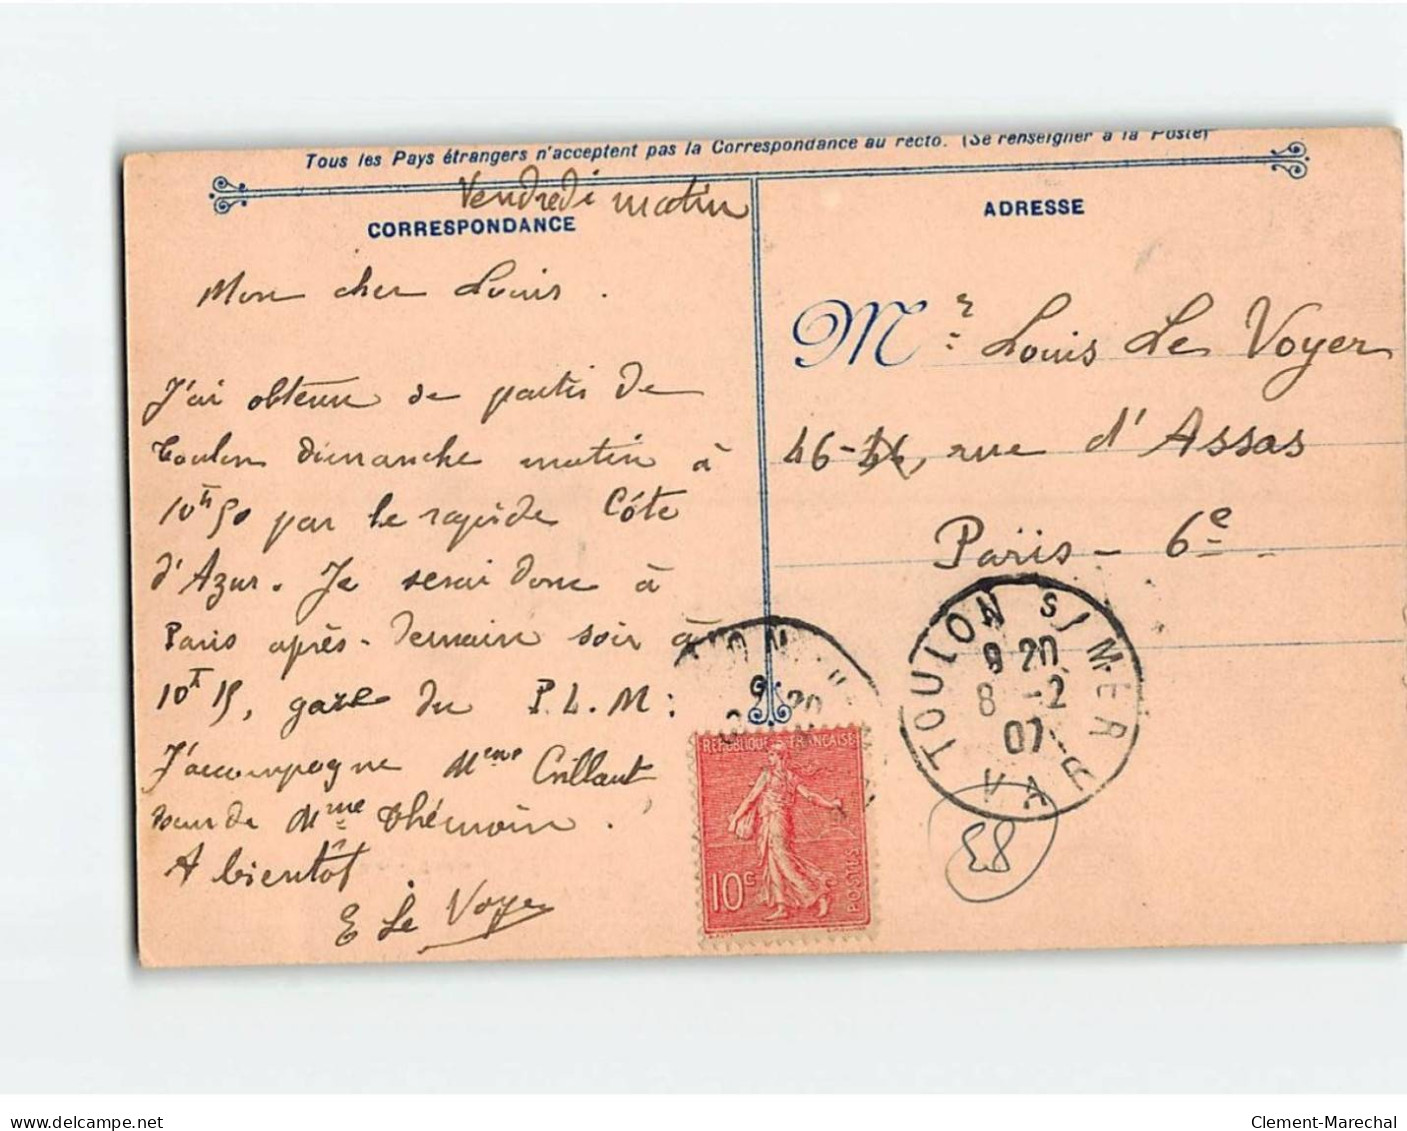 Tous les Pays étrangers n'acceptent pas la Correspondance au recto. (Se renseigner à la Poste)
Vendredi matin
CORRESPONDANCE
Mon cher Louis.
J'ai obtenu de partir de
Toulon dimanche matin à
10h50 par le rapide Côte
d'Azur. Je serai donc à
Paris après-demain soir à
10h15, gare du P.L.M:
J'accompagne Mme
soeur de Mme
A bientôt
E Le Voyer
ADRESSE
Mr Louis Le Voyer
46-46, rue d'Assas
Paris - 6e
TOULON S/MER
9 20
8 -2
07
VAR
REPUBLIQUE FRANÇAISE
10c
POSTES
delcampe.net
Clement-Marechal